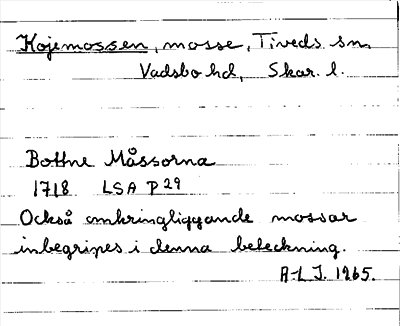 Kojemossen, mosse, Tiveds sn.
Vadsbo hd, Skar. l.
Bottne Måssorna
1718 LSA P 29
Också omkringliggande mossar
inbegripes i denna beteckning.
A-L J. 1965.